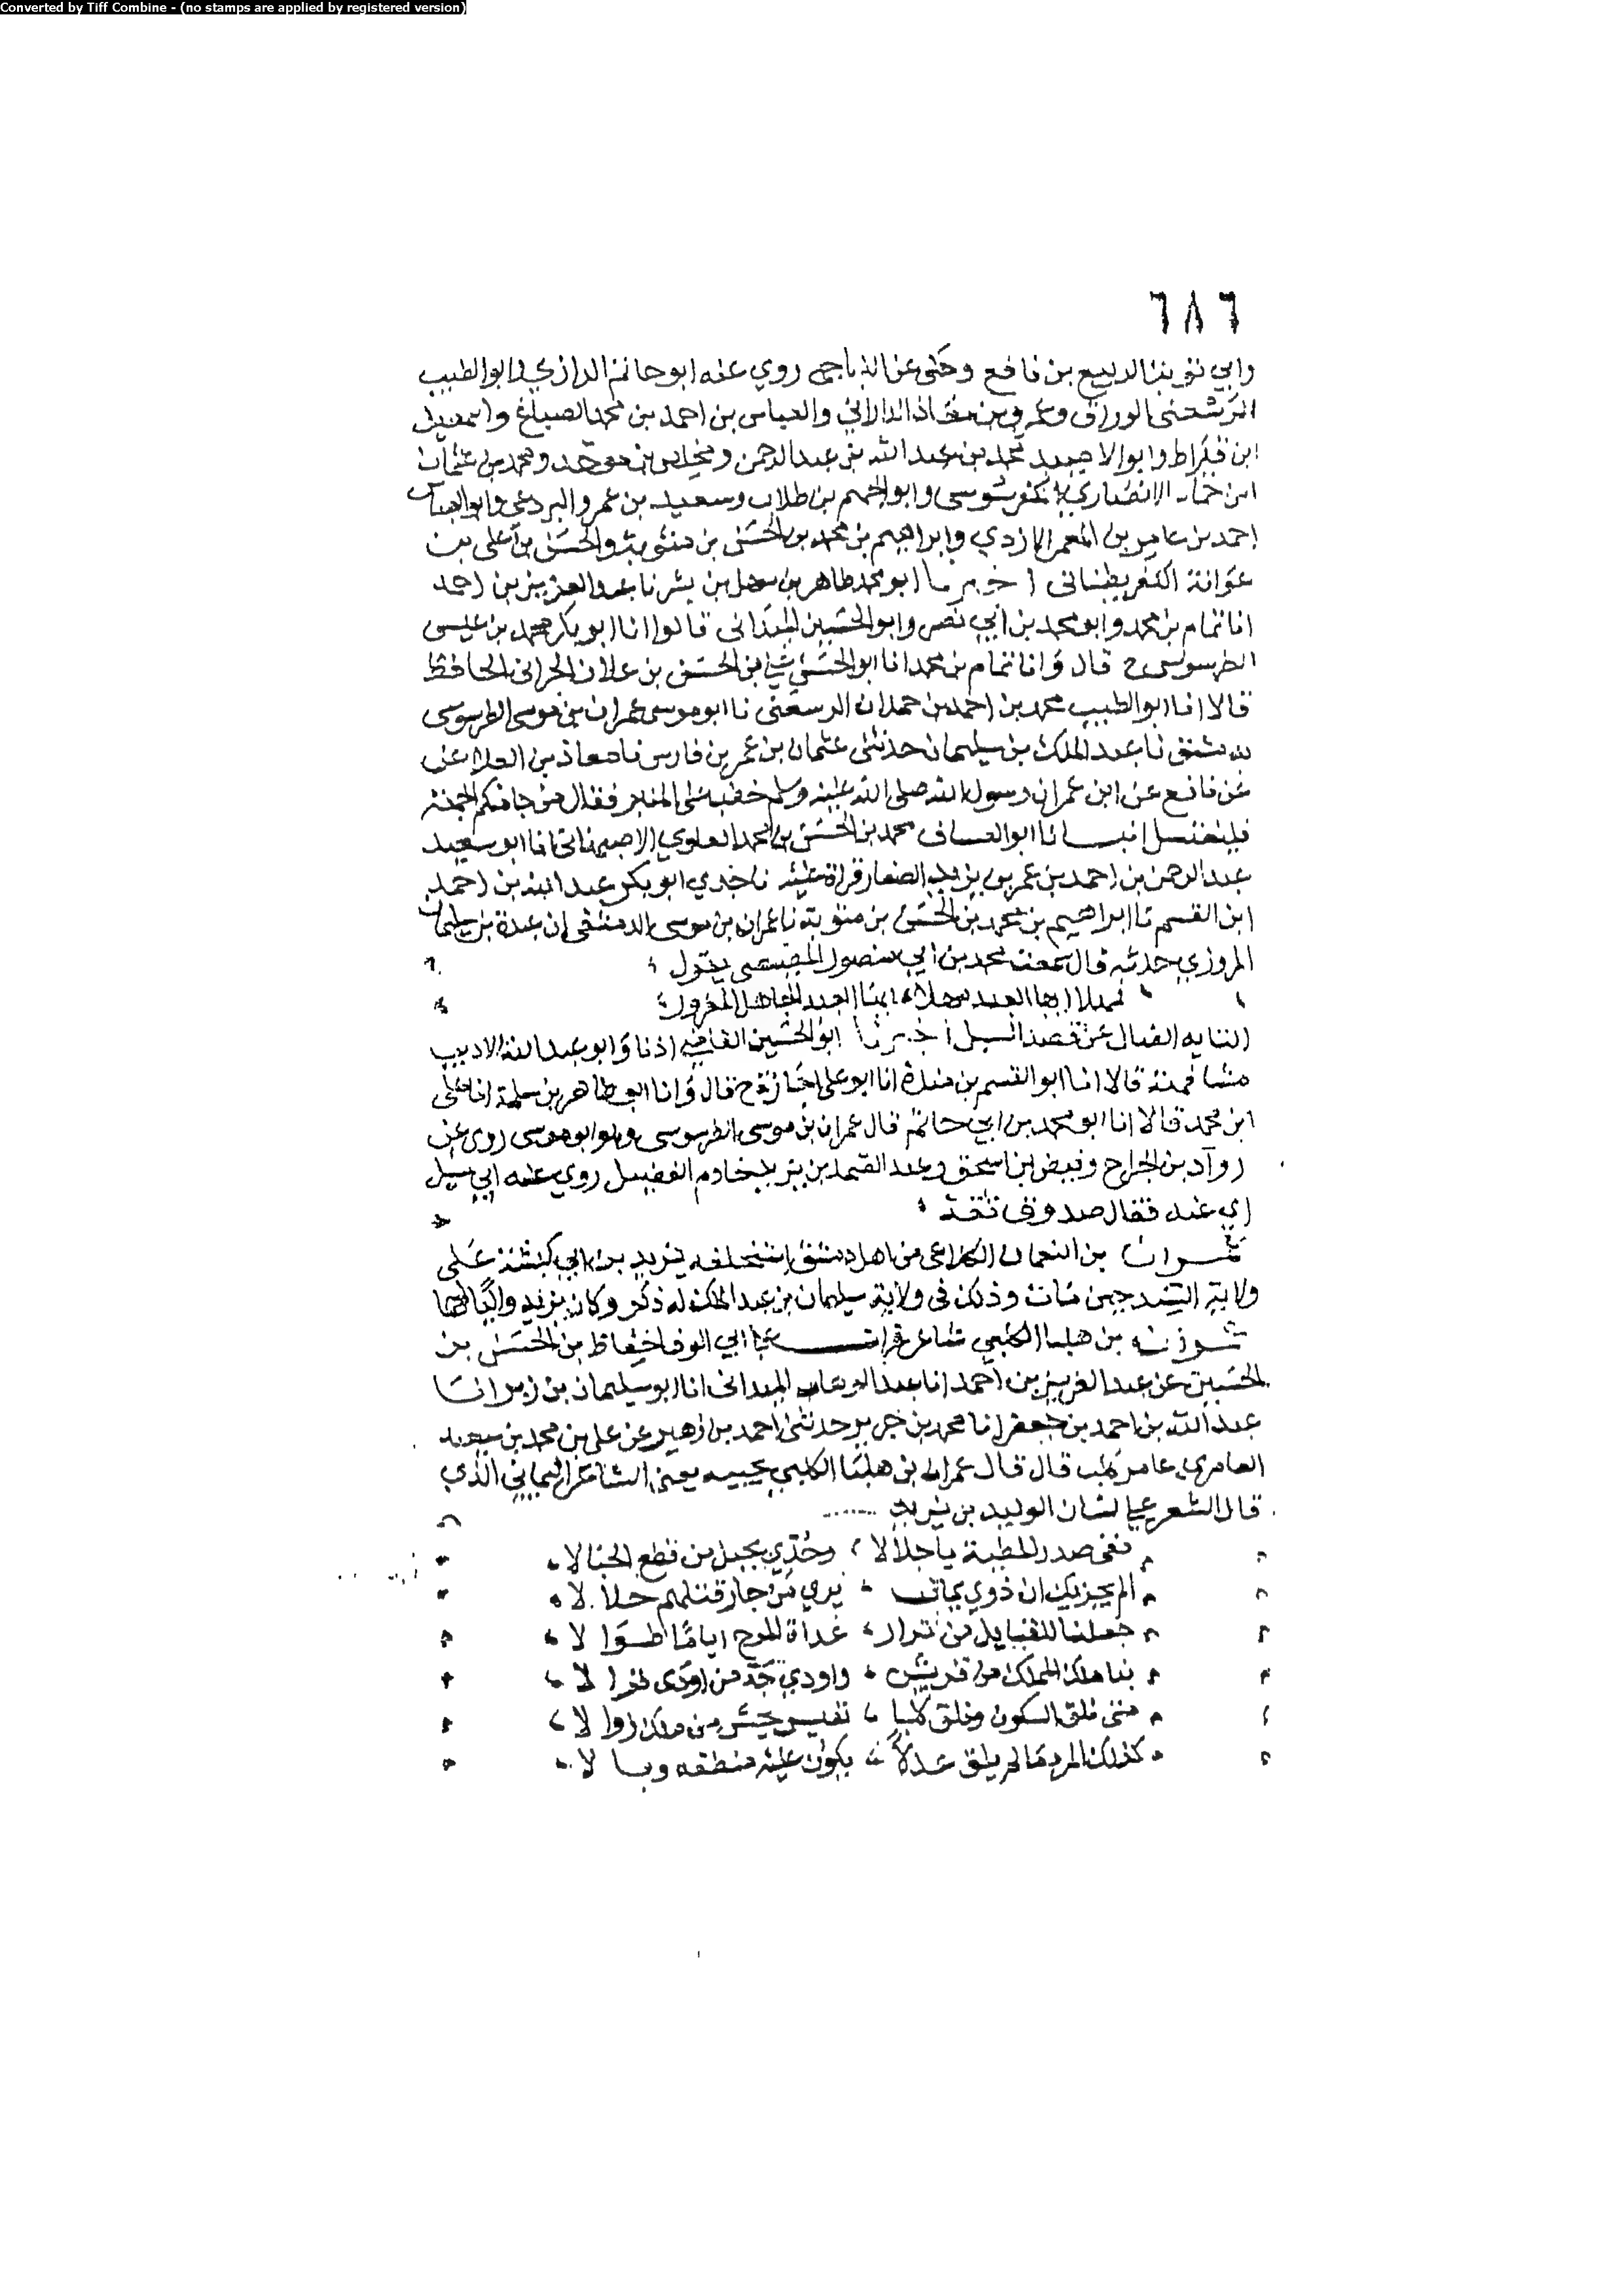 Converted by Tiff Combine - (no stamps are applied by registered version)
٦٨٦
وابي توبة الربيع بن نافع وحكى عن روي عنه ابو حاتم الرازي وابو الطيب
الرسعنى الوراق وعمرو بن الداراني والعباس بن احمد بن محمد الصباغ واسمعيل
ابن قيراط وابو الاصيد محمد بن عبد الله بن عبد الرحمن بن موحد ومحمد بن عثمان
ابن حماد الانصاري الكفرسوسى وابو الجهم بن طلاب وسعيد بن عمرو البردعي وابو العباس
احمد بن عامر بن المعمر الازدي وابراهيم بن محمد بن الحسن بن متويه والحسن بن على بن
عوانة الكفربطناني اخبرنا ابو محمد طاهر بن سهل بن بشر نا عبد العزيز بن احمد
انا تمام بن محمد وابو محمد بن ابي نصر وابو الحسين الميدانى قالوا انا ابو بكر محمد بن عيسى
الطرسوسى ح قال وانا تمام بن محمد انا ابو الحسن على بن الحسن بن علان الحرانى الحافظ
قالا انا ابو الطيب محمد بن احمد بن حمدان الرسعنى نا ابو موسى عمران بن موسى الطرسوسى
بدمشق نا عبد الملك بن سليمان حدثنى عثمان بن عمر بن فارس نا معاذ بن العلا عن
عن نافع عن ابن عمر ان رسول الله صلى الله عليه وسلم خطب على المنبر فقال من جا منكم الجمعة
فليغتسل انبانا ابو محمد بن الحسن بن محمد العلوي الاصبهانى انا ابو سعيد
عبد الرحمن بن احمد بن عمر بن يزيد الصفار قراة عليه نا جدي ابو بكر عبد الله بن احمد
ابن القسم نا ابراهيم بن محمد بن الحسن بن متويه نا عمران بن موسى الدمشقى ان عبدة بن سليمان
المروزي حدثه قال سمعت محمد بن ابي منصور المصيصى يقول
مهلا ايها العبد مهلا ايها العبد الجاهل المغرور
التايه الضال عن قصد السبيل اخبرنا ابو الحسين القاضي اذنا وابو عبد الله الاديب
مشافهة قالا انا ابو القسم بن مندة انا ابو على اجازة ح قال وانا ابو طاهر بن سلمة انا على
ابن محمد قالا انا ابو محمد بن ابي حاتم قال عمران بن موسى الطرسوسى وهو ابو موسى روى عن
رواد بن الجراح وفيض بن اسحق وعبد الصمد بن يزيد خادم الفضيل روي عنه ابي سيل
ابي عنه فقال صدوق ثقة
عمران بن النعمان الكلاعى من اهل دمشق استخلفه يزيد بن ابي كبشة على
ولاية السند حين مات وذلك فى ولاية سليمان بن عبد الملك له ذكر وكان يزيد واليا لها
عمران بن هلبا الكلبي شاعر قرات على ابي الوفا حفاظ بن الحسن بن
الحسين عن عبد العزيز بن احمد انا عبد الوهاب الميدانى انا ابو سليمان بن زبر انا
عبد الله بن احمد بن جعفر انا محمد بن جرير حدثنى احمد بن زهير عن على بن محمد بن سعيد
العامري عامر كلب قال قال عمران بن هلبا الكلبي يجيبه يعنى الشاعر اليماني الذي
قال الشعر على لسان الوليد بن يزيد
قفى صدر المطية يا حلالا وجذي بحبل من قطع الحبالا
الم يحزنك ان ذوي يمان يري من حاز قتلهم حلالا
جعلنا للقبايل من نزار غداة المرج اياما طوالا
بنا ملك الملك من قريش واودي جد من اودى فزالا
متى تلق السكون وتلق كلبا بعبس تخش من ملك زوالا
كذاك المرء ما لم يلق عدلا يكون عليه منطقه وبالا